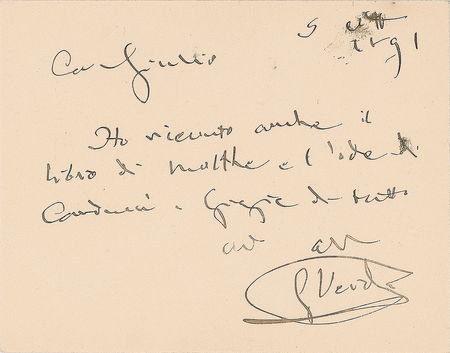 5 Sett
1891
Ca Giulio
Ho ricevuto anche il
libro di Molthe e l'ode di
Carducci e Grazie di tutto
G Verdi